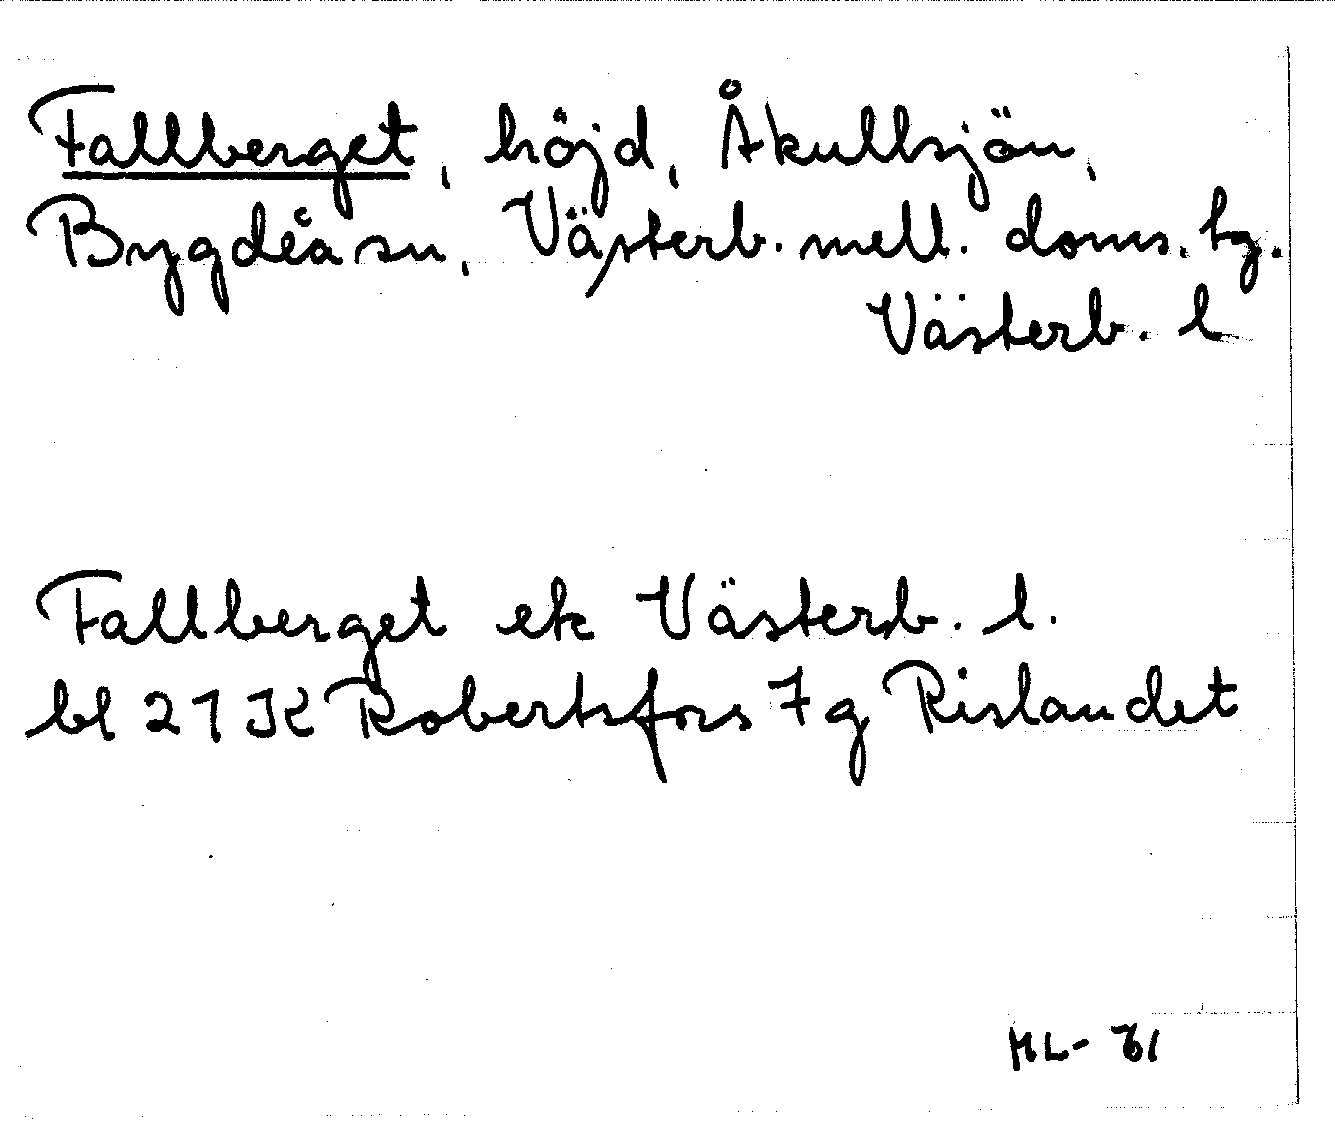 Fallberget, höjd, Åkullsjön,
Bygdeå sn, Västerb. mell. doms. tg.
Västerb. l
Fallberget ek Västerb. l.
bl 21 K Robertsfors 7 g Rislandet
HL-